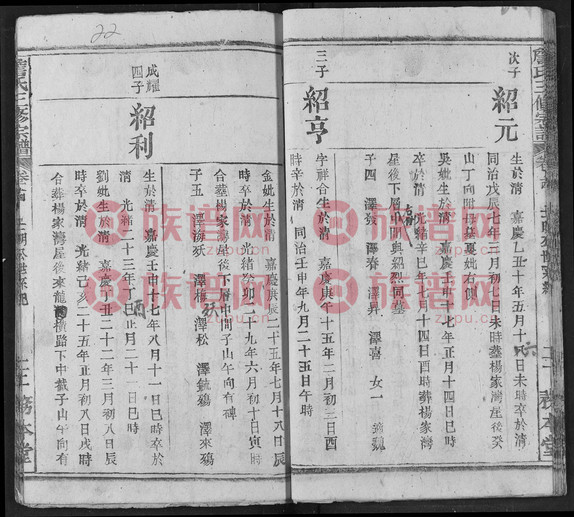 次子
紹元
生於清 嘉慶乙丑十年五月十日未時卒於清
同治戊辰七年三月初七日未時葬楊家灣屋後癸
山丁向附母墓戛妣右傾
吳妣生於清 嘉慶 年正月十四日巳時
卒於清 光緒辛巳年七月十四日酉時葬楊家灣
屋後下層中間與紹烈同墓
子四 澤陽 澤春 澤昇 澤喜 女一 適魏
三子
紹亨
字祥合生於清 嘉慶庚午十五年二月初三日酉
時辛於清 同治壬申年九月二十五日午時
22
金妣生於清 嘉慶庚辰二十五年七月十八日辰
時卒於清 光緒癸卯二十九年六月初十日寅時
合葬楊家灣屋後下層中間子山午向有碑
子五 澤海 澤梅 澤松 澤銃殤 澤來殤
成耀
四子
紹利
生於清 嘉慶壬申十七年八月十一日巳時卒於
清 光緒二十三年丁酉正月二十一日巳時
劉妣生於清 嘉慶丁丑二十二年三月初八日辰
時卒於清 光緒己亥二十五年正月初八日戌時
合葬楊家灣屋後來龍横路下中截子山午向有
詹氏三修宗譜
務本堂
族谱网